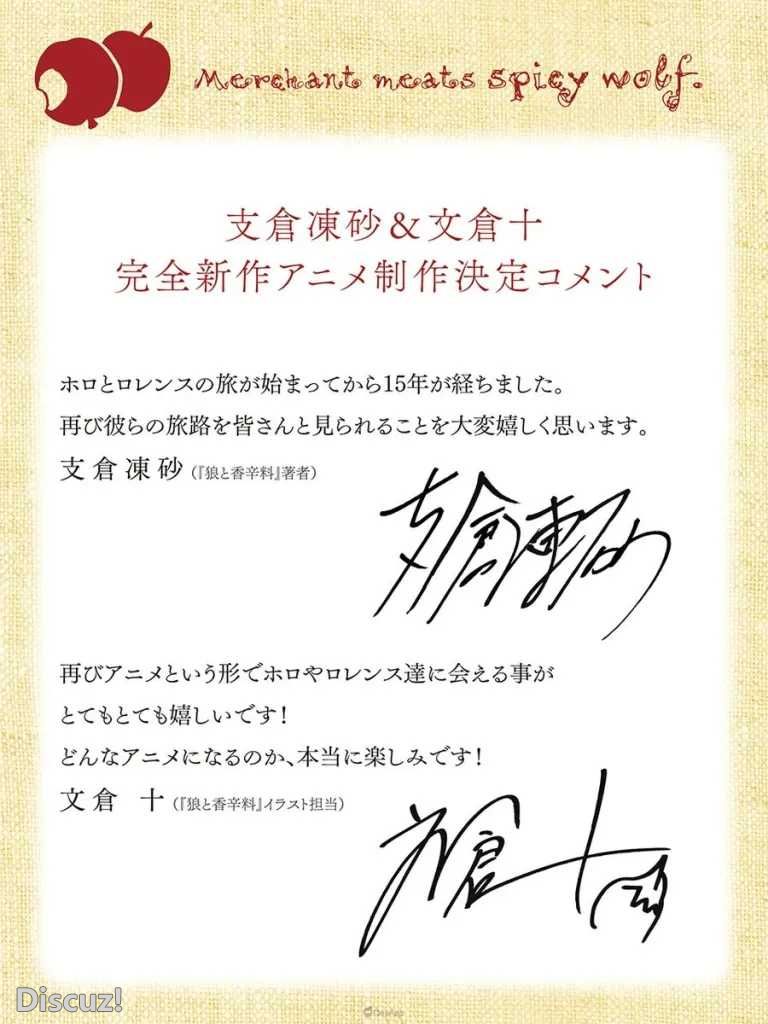 Merchant meats spicy wolf.
支倉凍砂&文倉十
完全新作アニメ制作決定コメント
ホロとロレンスの旅が始まってから15年が経ちました。
再び彼らの旅路を皆さんと見られることを大変嬉しく思います。
支倉凍砂（『狼と香辛料』著者）
支倉凍砂
再びアニメという形でホロやロレンス達に会える事が
とてもとても嬉しいです！
どんなアニメになるのか、本当に楽しみです！
文倉 十（『狼と香辛料』イラスト担当）
文倉十
Discuz!